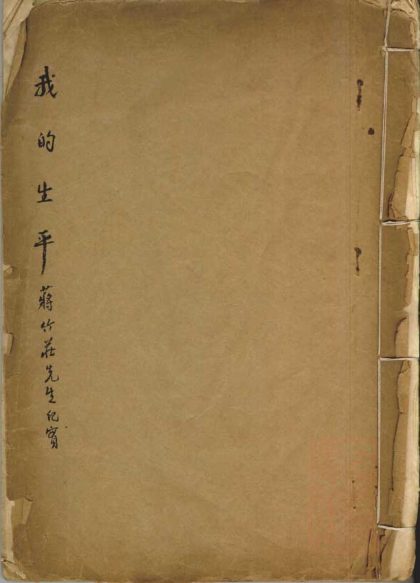 我的生平
蔣竹莊先生紀實